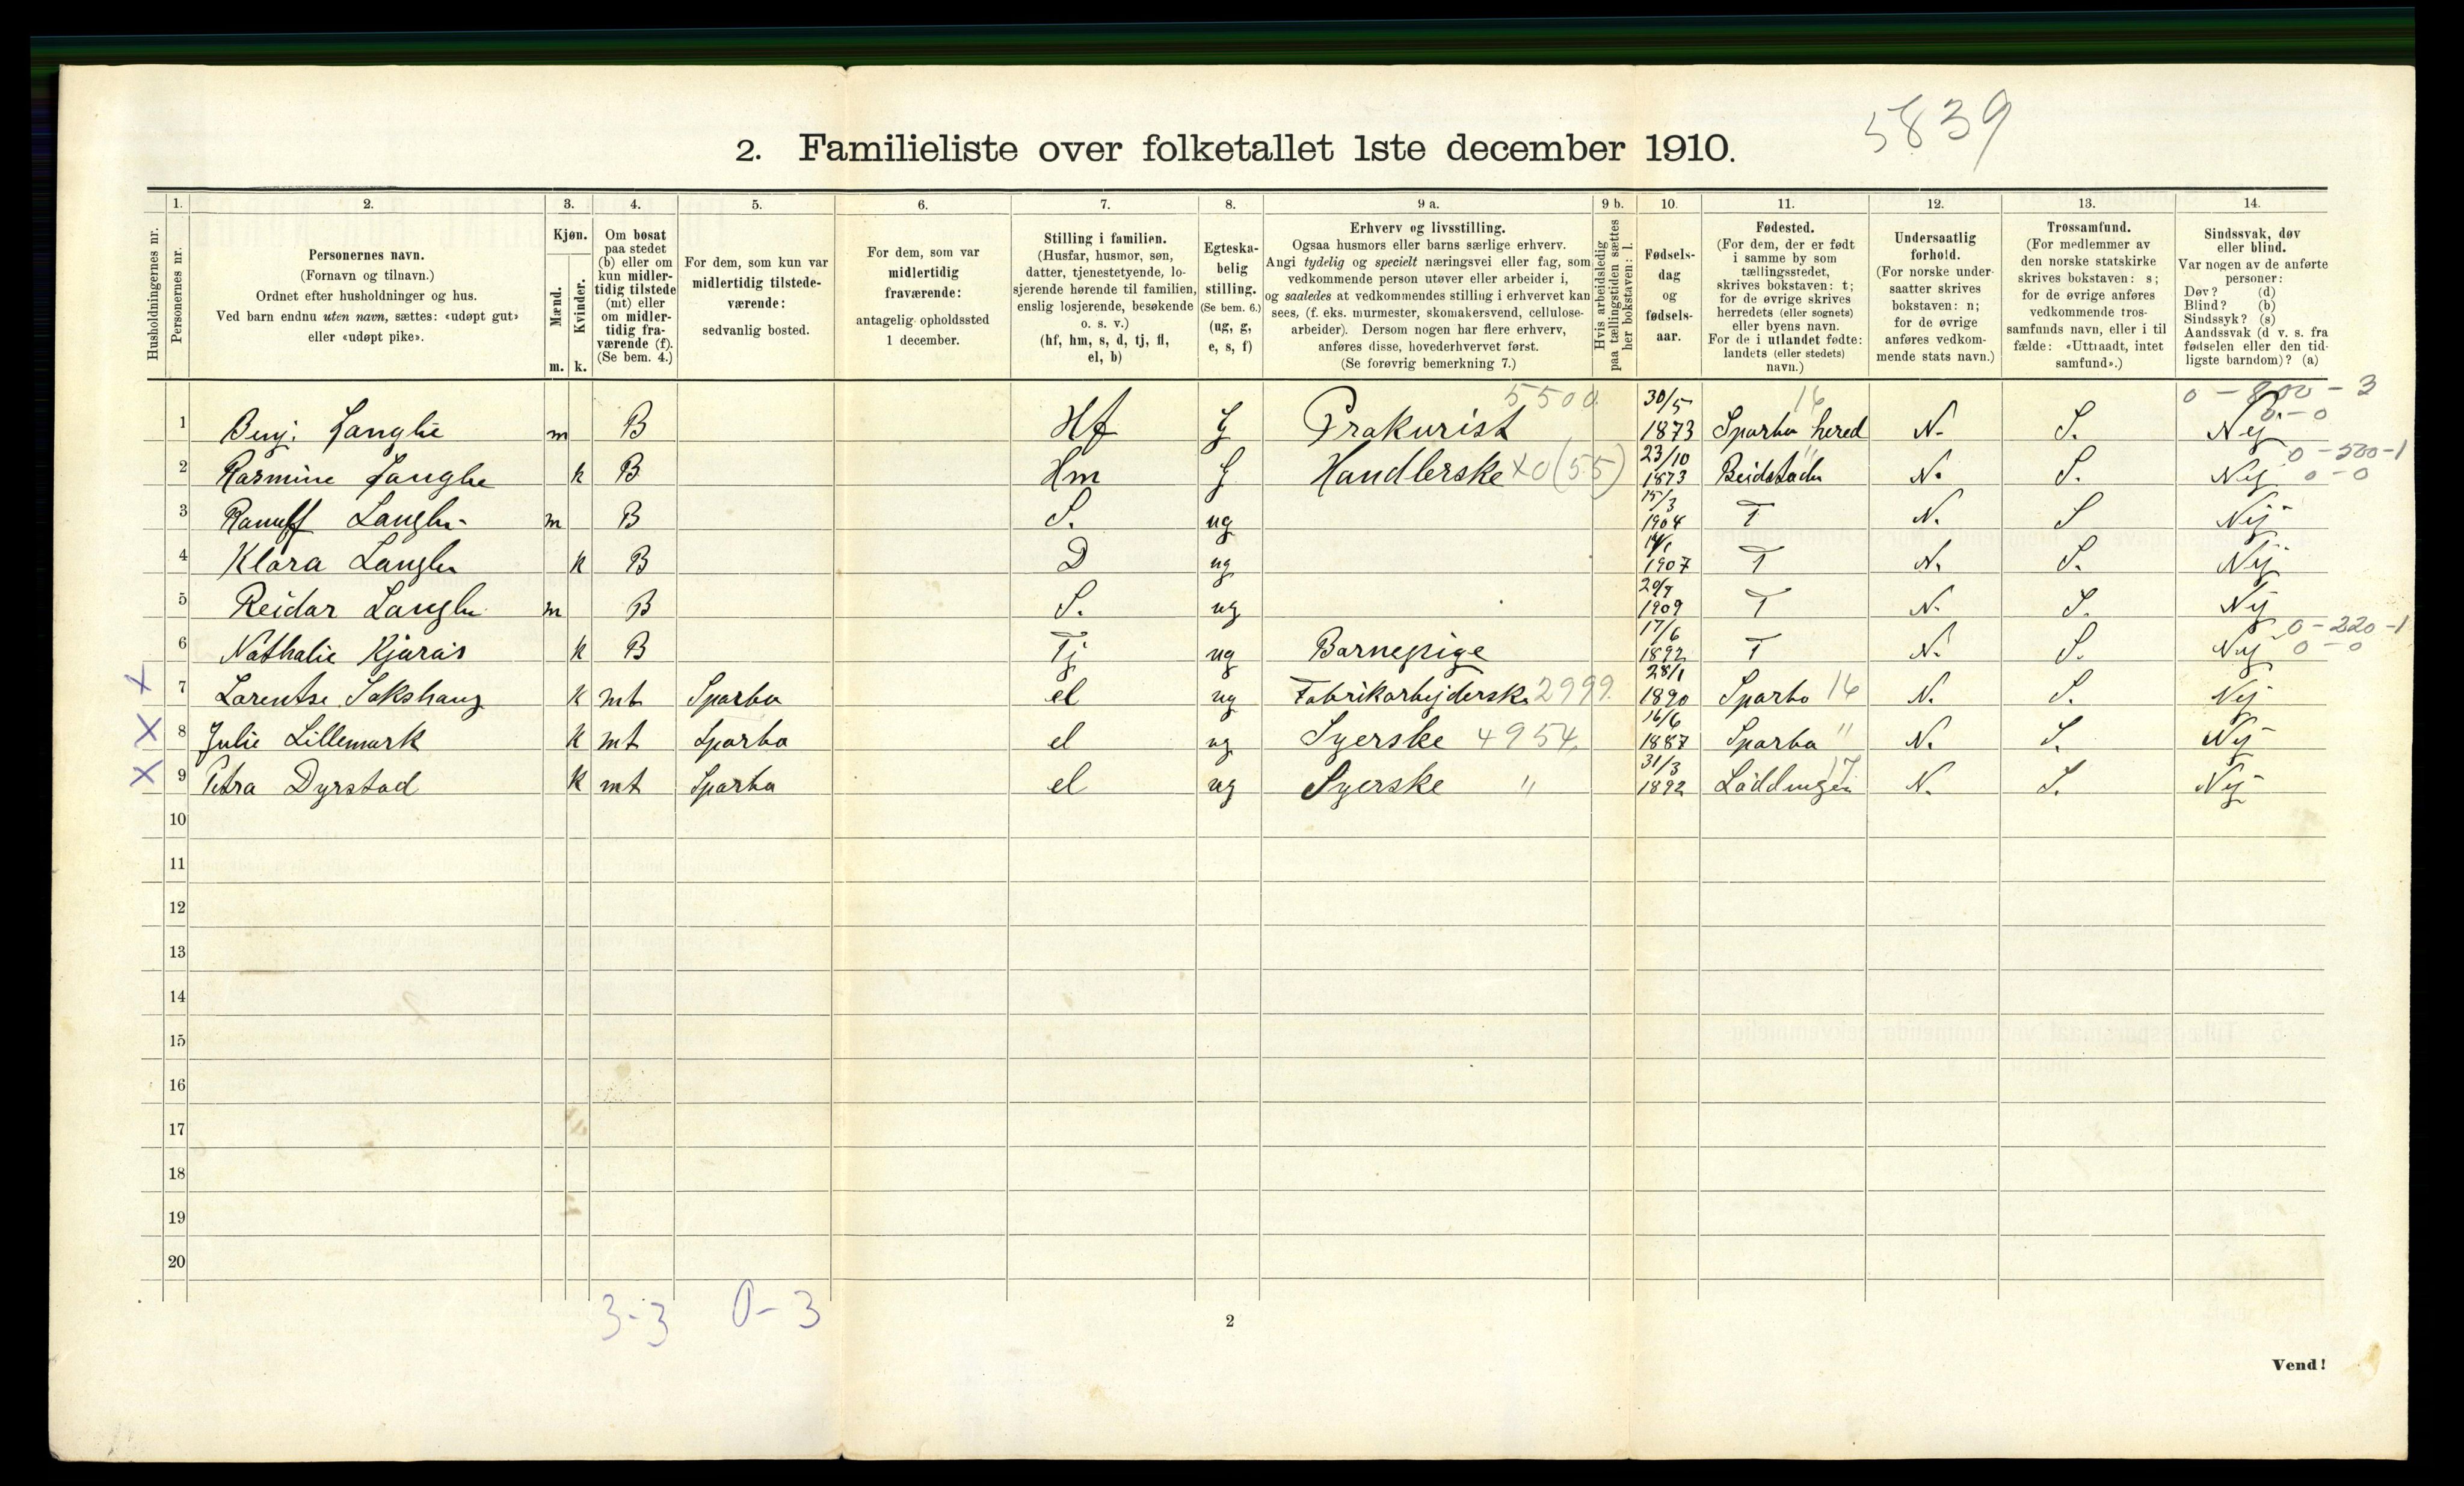 5839
2. Familieliste over folketallet 1ste december 1910.
Husholdningernes nr.
1. Personernes nr.
2. Personernes navn.
(Fornavn og tilnavn.)
Ordnet efter husholdninger og hus.
Ved barn endnu uten navn, sættes: «udøpt gut»
eller «udøpt pike».
3. Kjøn.
Mænd. m.
Kvinder. k.
4. Om bosat
paa stedet
(b) eller om
kun midler-
tidig tilstede
(mt) eller
om midler-
tidig fra-
værende (f).
(Se bem. 4.)
5. For dem, som kun var
midlertidig tilstede-
værende:
sedvanlig bosted.
6. For dem, som var
midlertidig
fraværende:
antagelig opholdssted
1 december.
7. Stilling i familien.
(Husfar, husmor, søn,
datter, tjenestetyende, lo-
sjerende hørende til familien,
enslig losjerende, besøkende
o. s. v.)
(hf, hm, s, d, tj, fl,
el, b)
8. Egteska-
belig
stilling.
(Se bem. 6.)
(ug, g,
e, s, f)
9 a. Erhverv og livsstilling.
Ogsaa husmors eller barns særlige erhverv.
Angi tydelig og specielt næringsvei eller fag, som
vedkommende person utøver eller arbeider i,
og saaledes at vedkommendes stilling i erhvervet kan
sees, (f. eks. murmester, skomakersvend, cellulose-
arbeider). Dersom nogen har flere erhverv,
anføres disse, hovederhvervet først.
(Se forøvrig bemerkning 7.)
9 b. Hvis arbeidsledig
paa tællingstiden sættes
her bokstaven: l.
10. Fødsels-
dag
og
fødsels-
aar.
11. Fødested.
(For dem, der er født
i samme by som
tællingsstedet,
skrives bokstaven: t;
for de øvrige skrives
herredets (eller sognets)
eller byens navn.
For de i utlandet fødte:
landets (eller stedets)
navn.)
12. Undersaatlig
forhold.
(For norske under-
saatter skrives
bokstaven: n;
for de øvrige
anføres vedkom-
mende stats navn.)
13. Trossamfund.
(For medlemmer av
den norske statskirke
skrives bokstaven: s;
for de øvrige anføres
vedkommende tros-
samfunds navn, eller i til
fælde: «Uttraadt, intet
samfund».)
14. Sindssvak, døv
eller blind.
Var nogen av de anførte
personer:
Døv? (d)
Blind? (b)
Sindssyk? (s)
Aandssvak (d v. s. fra
fødselen eller den tid-
ligste barndom)? (a)
5500 30/5 16 0 - 800 - 3
0 - 0
1 Benj. Langlie m B Hf G Prokurist 1873 Sparbo hered N. S. Nej
23/10 0 - 500 - 1
2 Rasmine Langlie k B Hm G Handlerske x0 (55) 1873 Beidstaden N. S. Nej 0 - 0
15/3
3 Langlie m B S. ug 1904 T N. S Nej
4 Klara Langlie k B D ug 1907 T N. S. Nej
5 Reidar Langlie m B S. ug 1909 T N. S. Nej
17/6 0 - 220 - 1
6 Nathalie k B Tj ug Barnepige 1892 T N. S. Nej 0 - 0
28/1
X 7 Lorentse Sakshaug k mt Sparbo el ug Fabrikarbejderske 2999 1890 Sparbo 16 N. S. Nej
16/6
X 8 Julie Lillemark k mt Sparbo el ug Syerske 4954 1887 Sparbo " N. S. Nej
31/3 17
X 9 Petra Dyrstad k mt Sparbo el ug Syerske " 1892 Löddingen N. S. Nej
10
11
12
13
14
15
16
17
18
19
20
3-3 0-3
2
Vend!